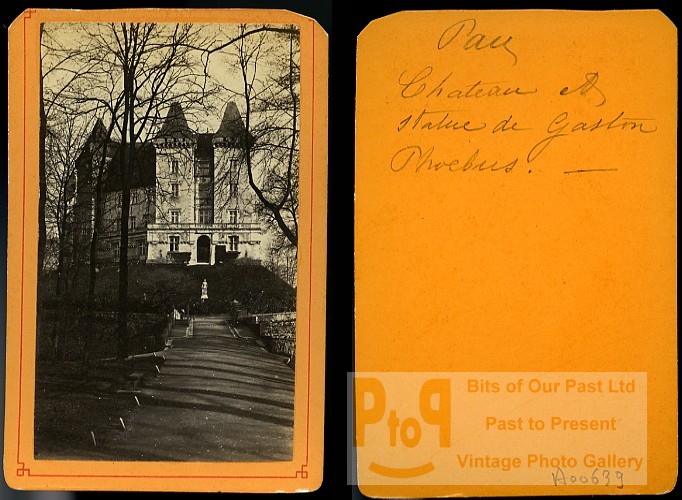 Pau
Chateau et
statue de Gaston
Phoebus. —
PtoP
Bits of Our Past Ltd
Past to Present
Vintage Photo Gallery
A00639